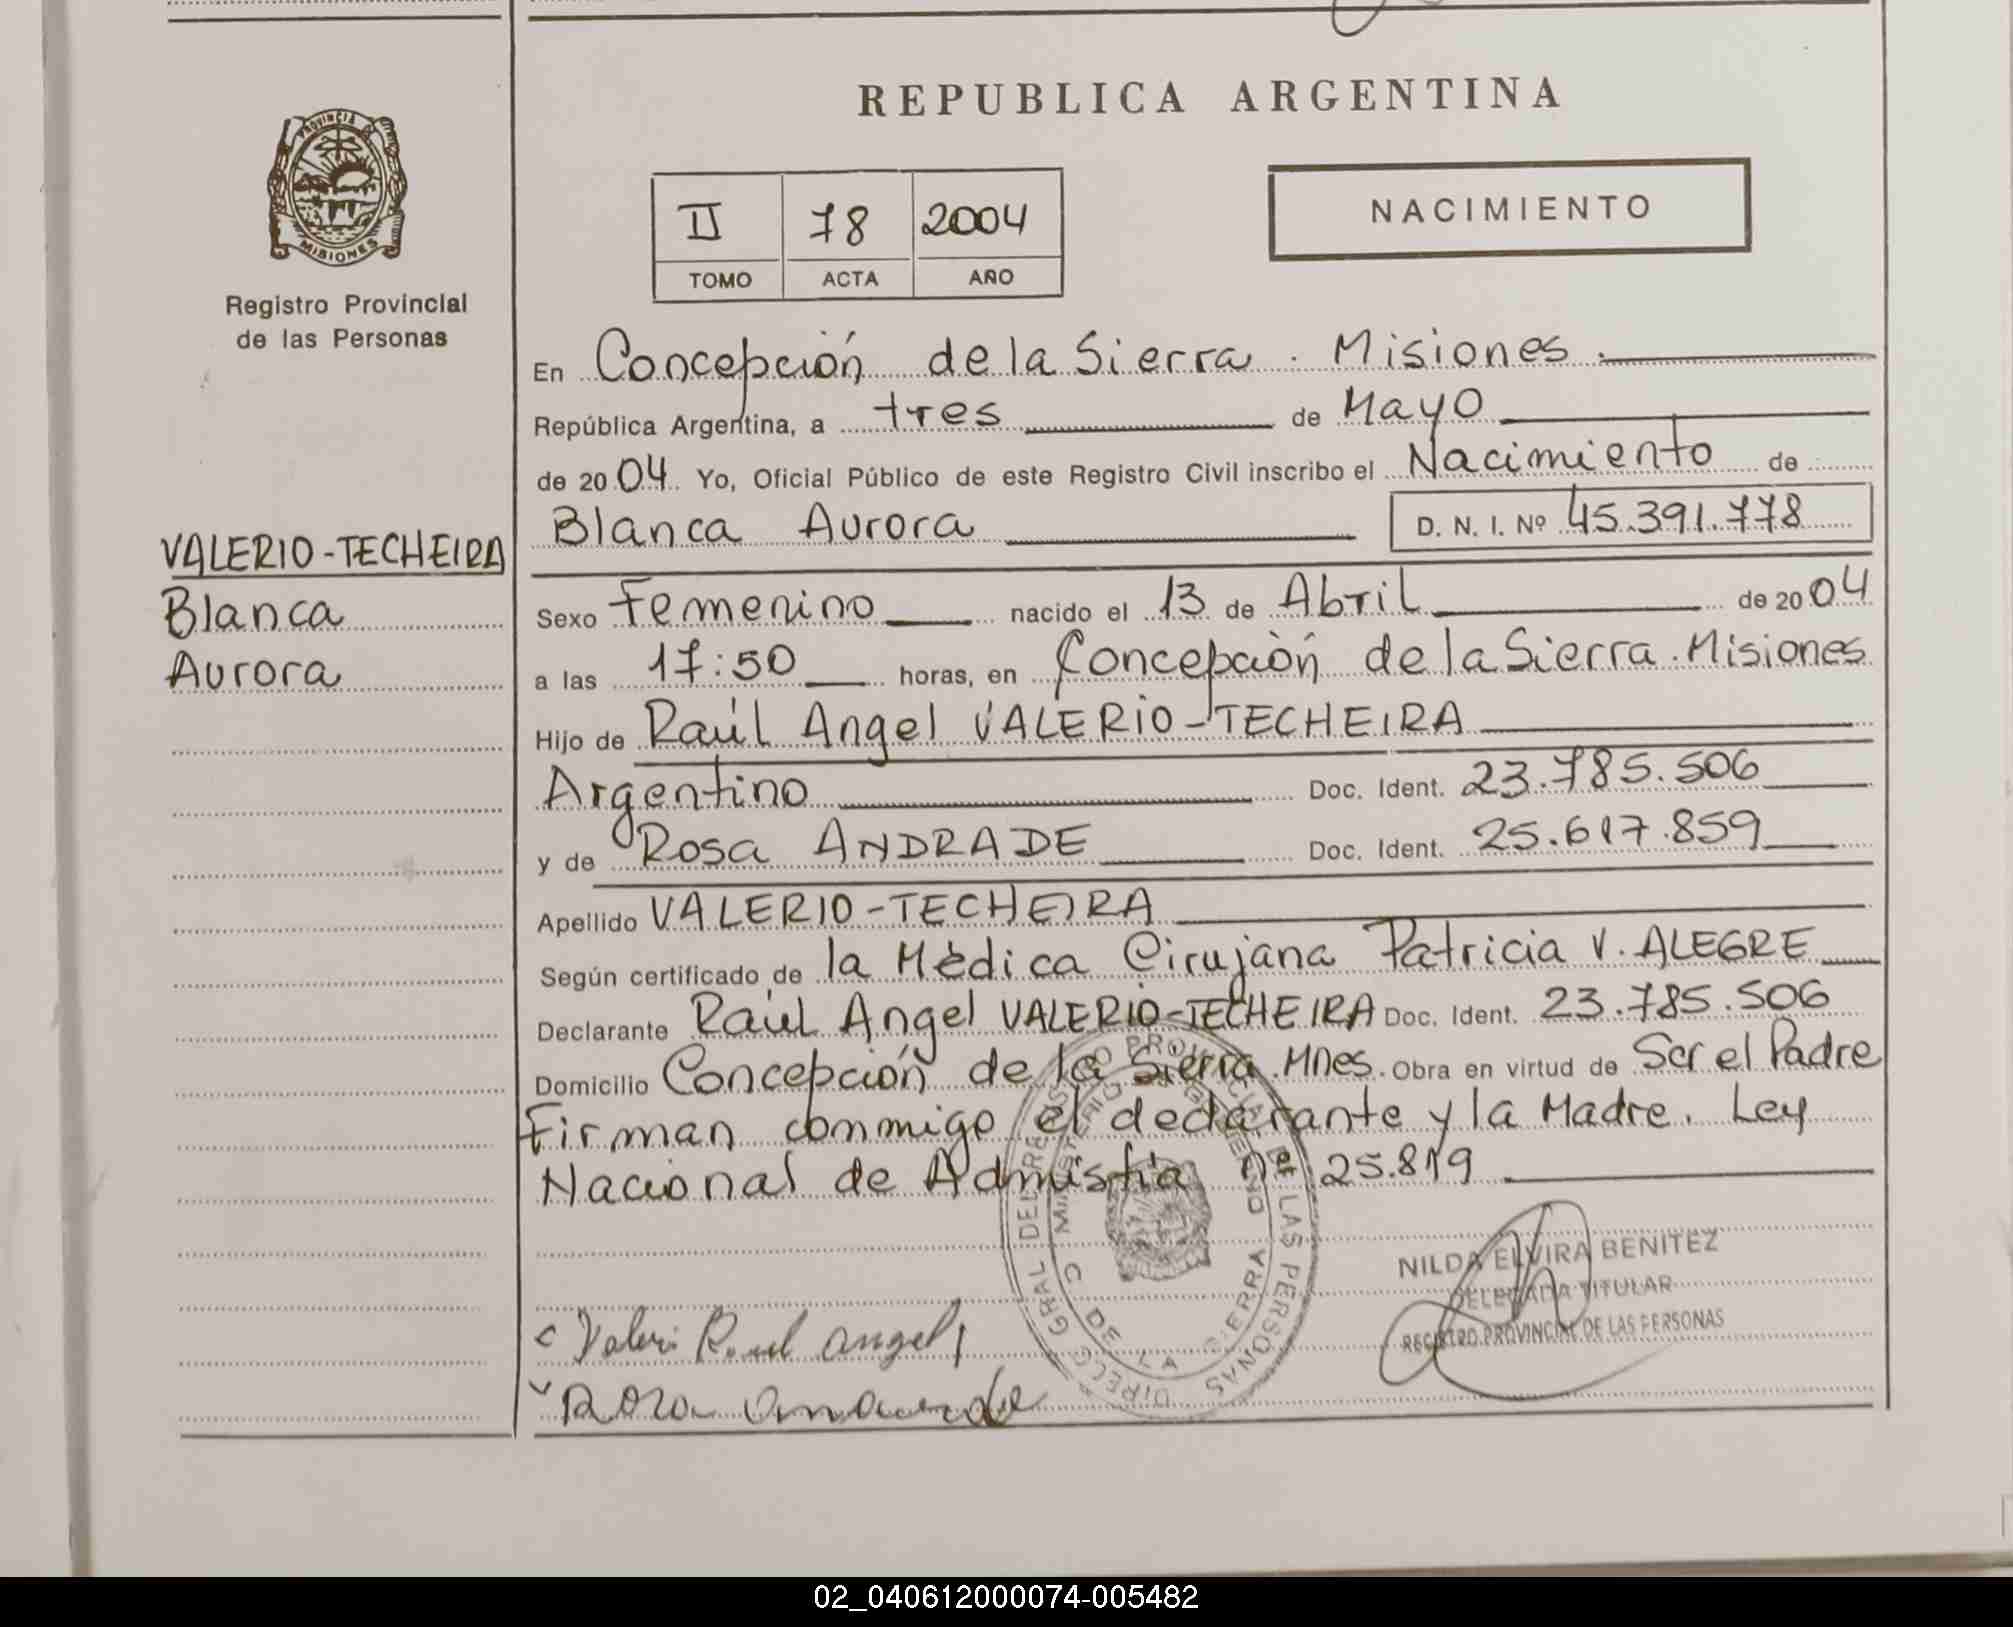 REPUBLICA ARGENTINA
PROVINCIA DE MISIONES
Registro Provincial
de las Personas
II 78 2004
TOMO ACTA AÑO
NACIMIENTO
En Concepción de la Sierra. Misiones.
República Argentina, a tres de Mayo
de 2004 Yo, Oficial Público de este Registro Civil inscribo el Nacimiento de
Blanca Aurora D. N. I. Nº 45.391.778
VALERIO-TECHEIRA
Blanca
Aurora
Sexo Femenino nacido el 13 de Abril de 2004
a las 17:50 horas, en Concepción de la Sierra. Misiones
Hijo de Raúl Angel VALERIO-TECHEIRA
Argentino Doc. Ident. 23.785.506
y de Rosa ANDRADE Doc. Ident. 25.617.859
Apellido VALERIO-TECHEIRA
Según certificado de la Mèdica Cirujana Patricia V. ALEGRE
Declarante Raúl Angel VALERIO-TECHEIRA Doc. Ident. 23.785.506
Domicilio Concepción de la Sierra. Mnes. Obra en virtud de Ser el Padre
Firman conmigo el declarante y la Madre. Ley
Nacional de Admistia nº 25.819
NILDA ELVIRA BENITEZ
DELEGADA TITULAR
REGISTRO PROVINCIAL DE LAS PERSONAS
Valeri Raul angel
Rosa
02_040612000074-005482